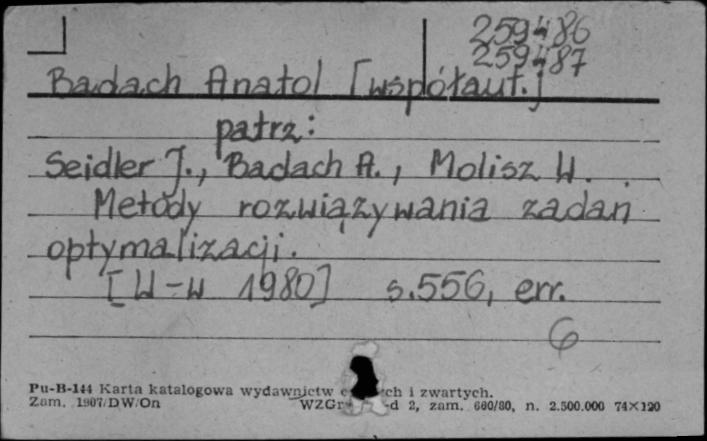 259486
259487
Badach Anatol [współaut.]
patrz:
Seidler J., Badach A., Molisz W.
Metody rozwiązywania zadań
optymalizacji.
[W-w 1980] s.556, err.
6
Pu-B-144 Karta katalogowa wydawnictw ch i zwartych.
Zam. 1907/DW/On WZGr d 2, zam. 660/80, n. 2.500.000 74×120